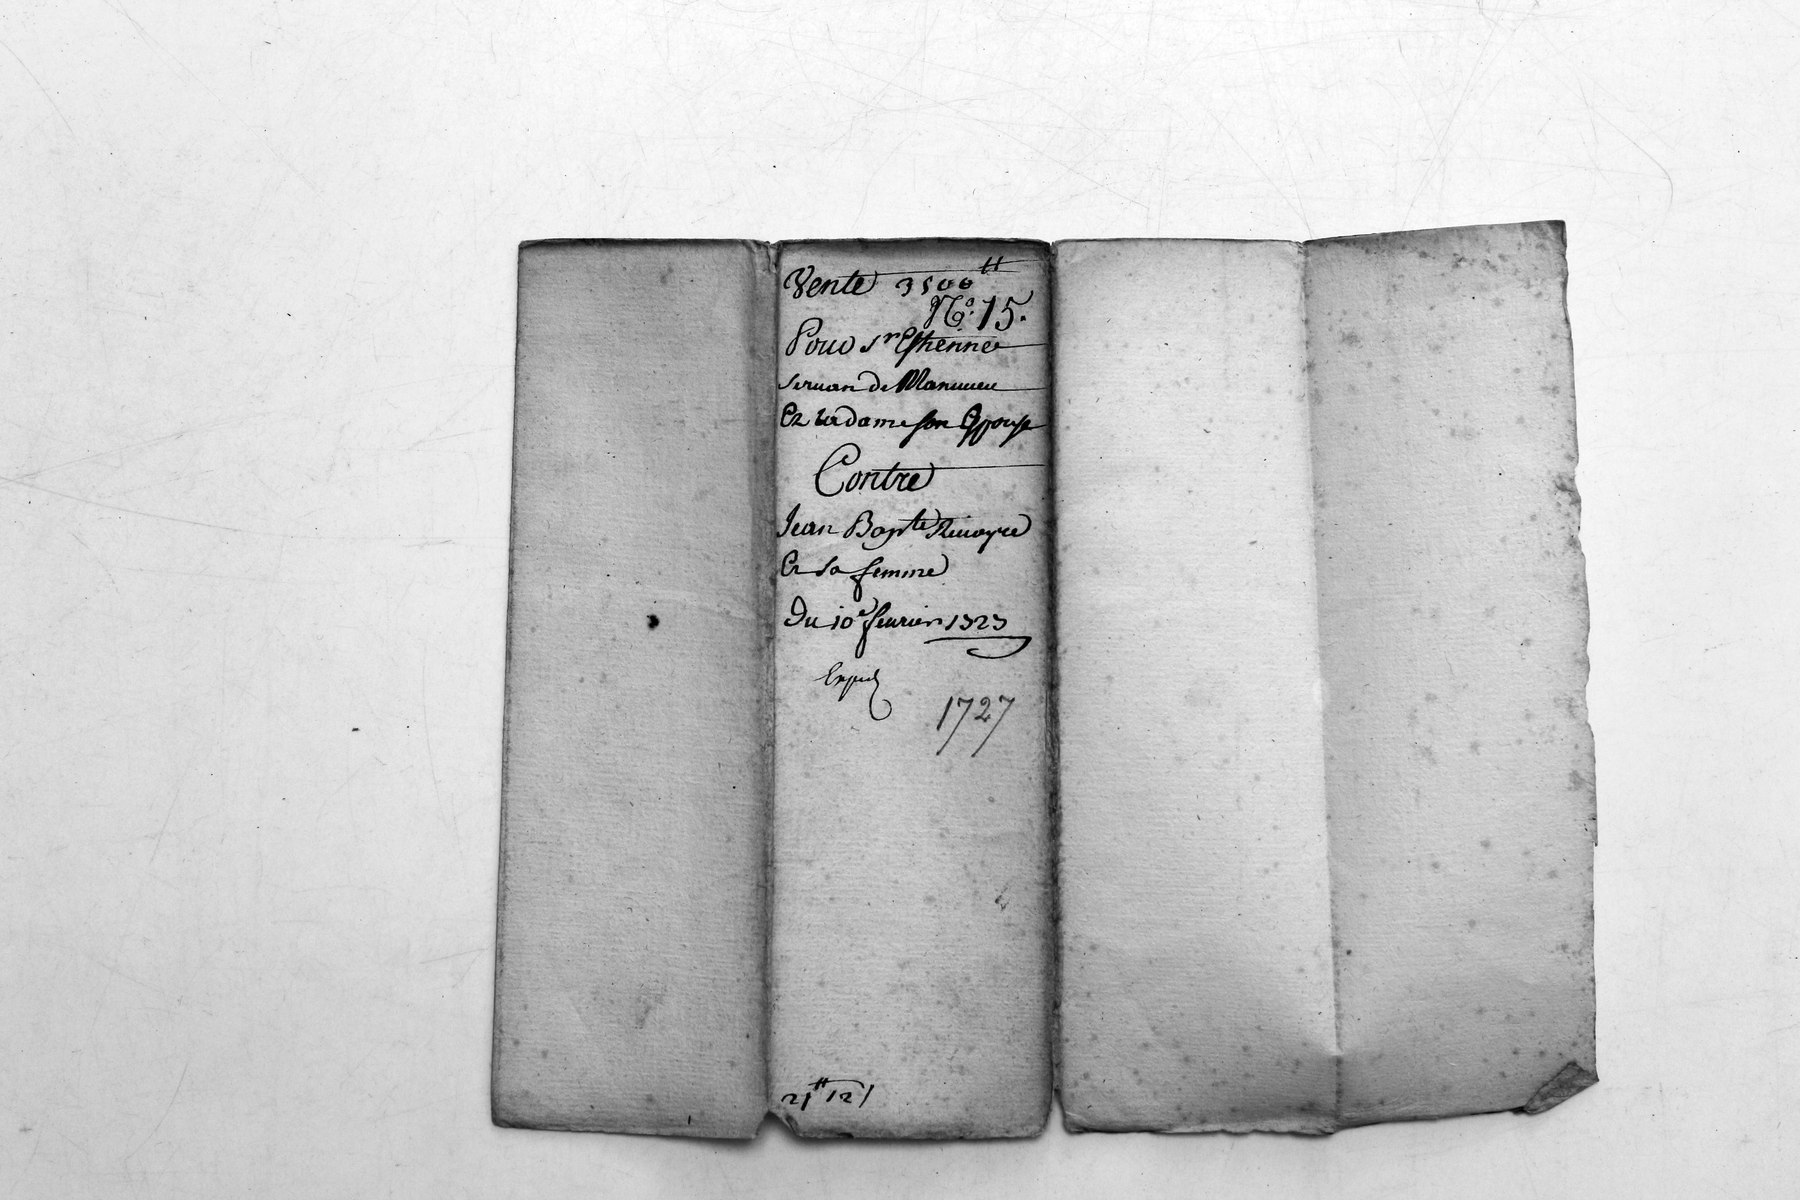 Vente 3500 ₶
N.° 15.
Pour Sr Esthienne
servan de
Et la dame son Epouse
Contre
Jean Bapte
Et sa femme
Du 10e fevrier 1727
Expié
1727
21₶ 12 s